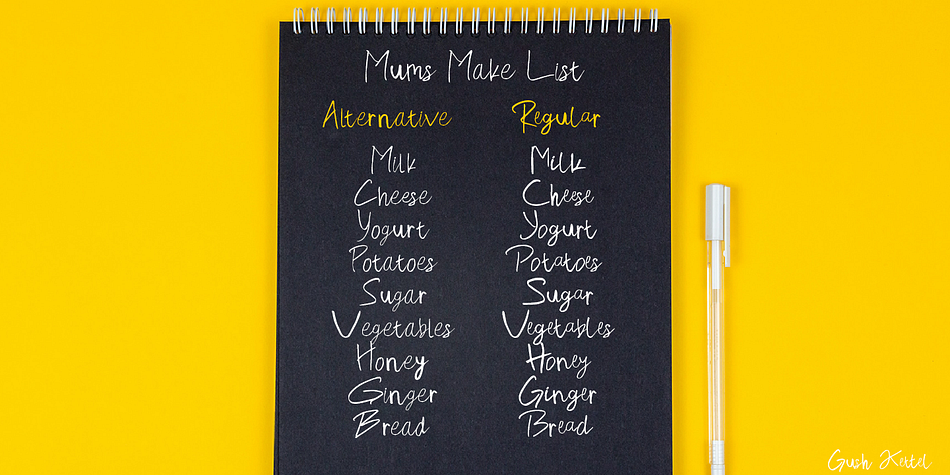 Mums Make List
Alternative Regular
Milk Milk
Cheese Cheese
Yogurt Yogurt
Potatoes Potatoes
Sugar Sugar
Vegetables Vegetables
Honey Honey
Ginger Ginger
Bread Bread
Gush Keitel